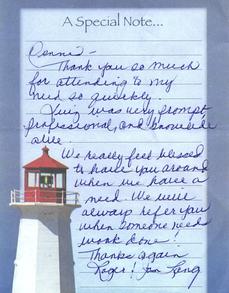 A Special Note...
Dennis -
Thank you so much
for attending to my
need so quickly.
was very prompt,
professional, and knowledge
able.
We really feel blessed
to have you around
when we have a
need. We will
always refer you
when someone need
work done!
Thanks again
Roger & Jan